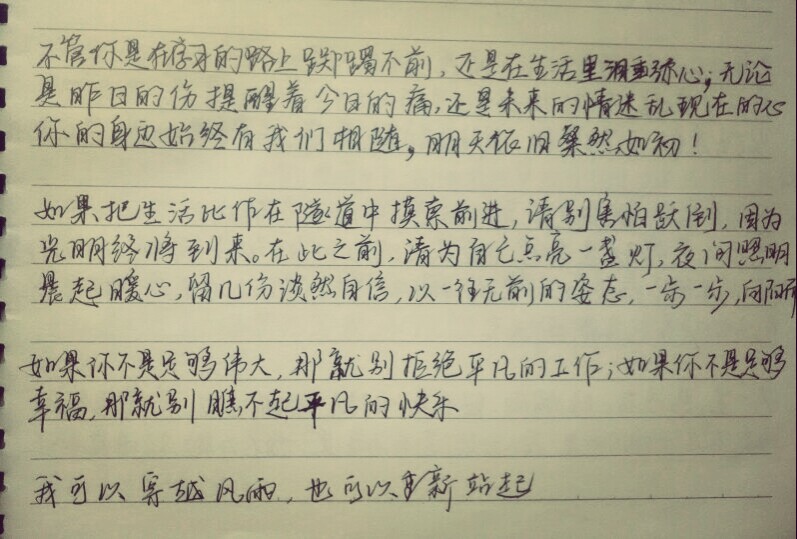 不管你是在学习的路上踯躅不前，还是在生活里泪垂弥心；无论
是昨日的伤提醒着今日的痛，还是未来的情迷乱现在的心
你的身边始终有我们相随，明天依旧粲然如初！
如果把生活比作在隧道中摸索前进，请别害怕跌倒，因为
光明终将到来。在此之前，请为自己点亮一盏灯，夜间照明
晨起暖心，留几份淡然自信，以一往无前的姿态，一步一步，向阳而
如果你不是足够伟大，那就别拒绝平凡的工作；如果你不是足够
幸福，那就别瞧不起平凡的快乐
我可以穿越风雨，也可以重新站起